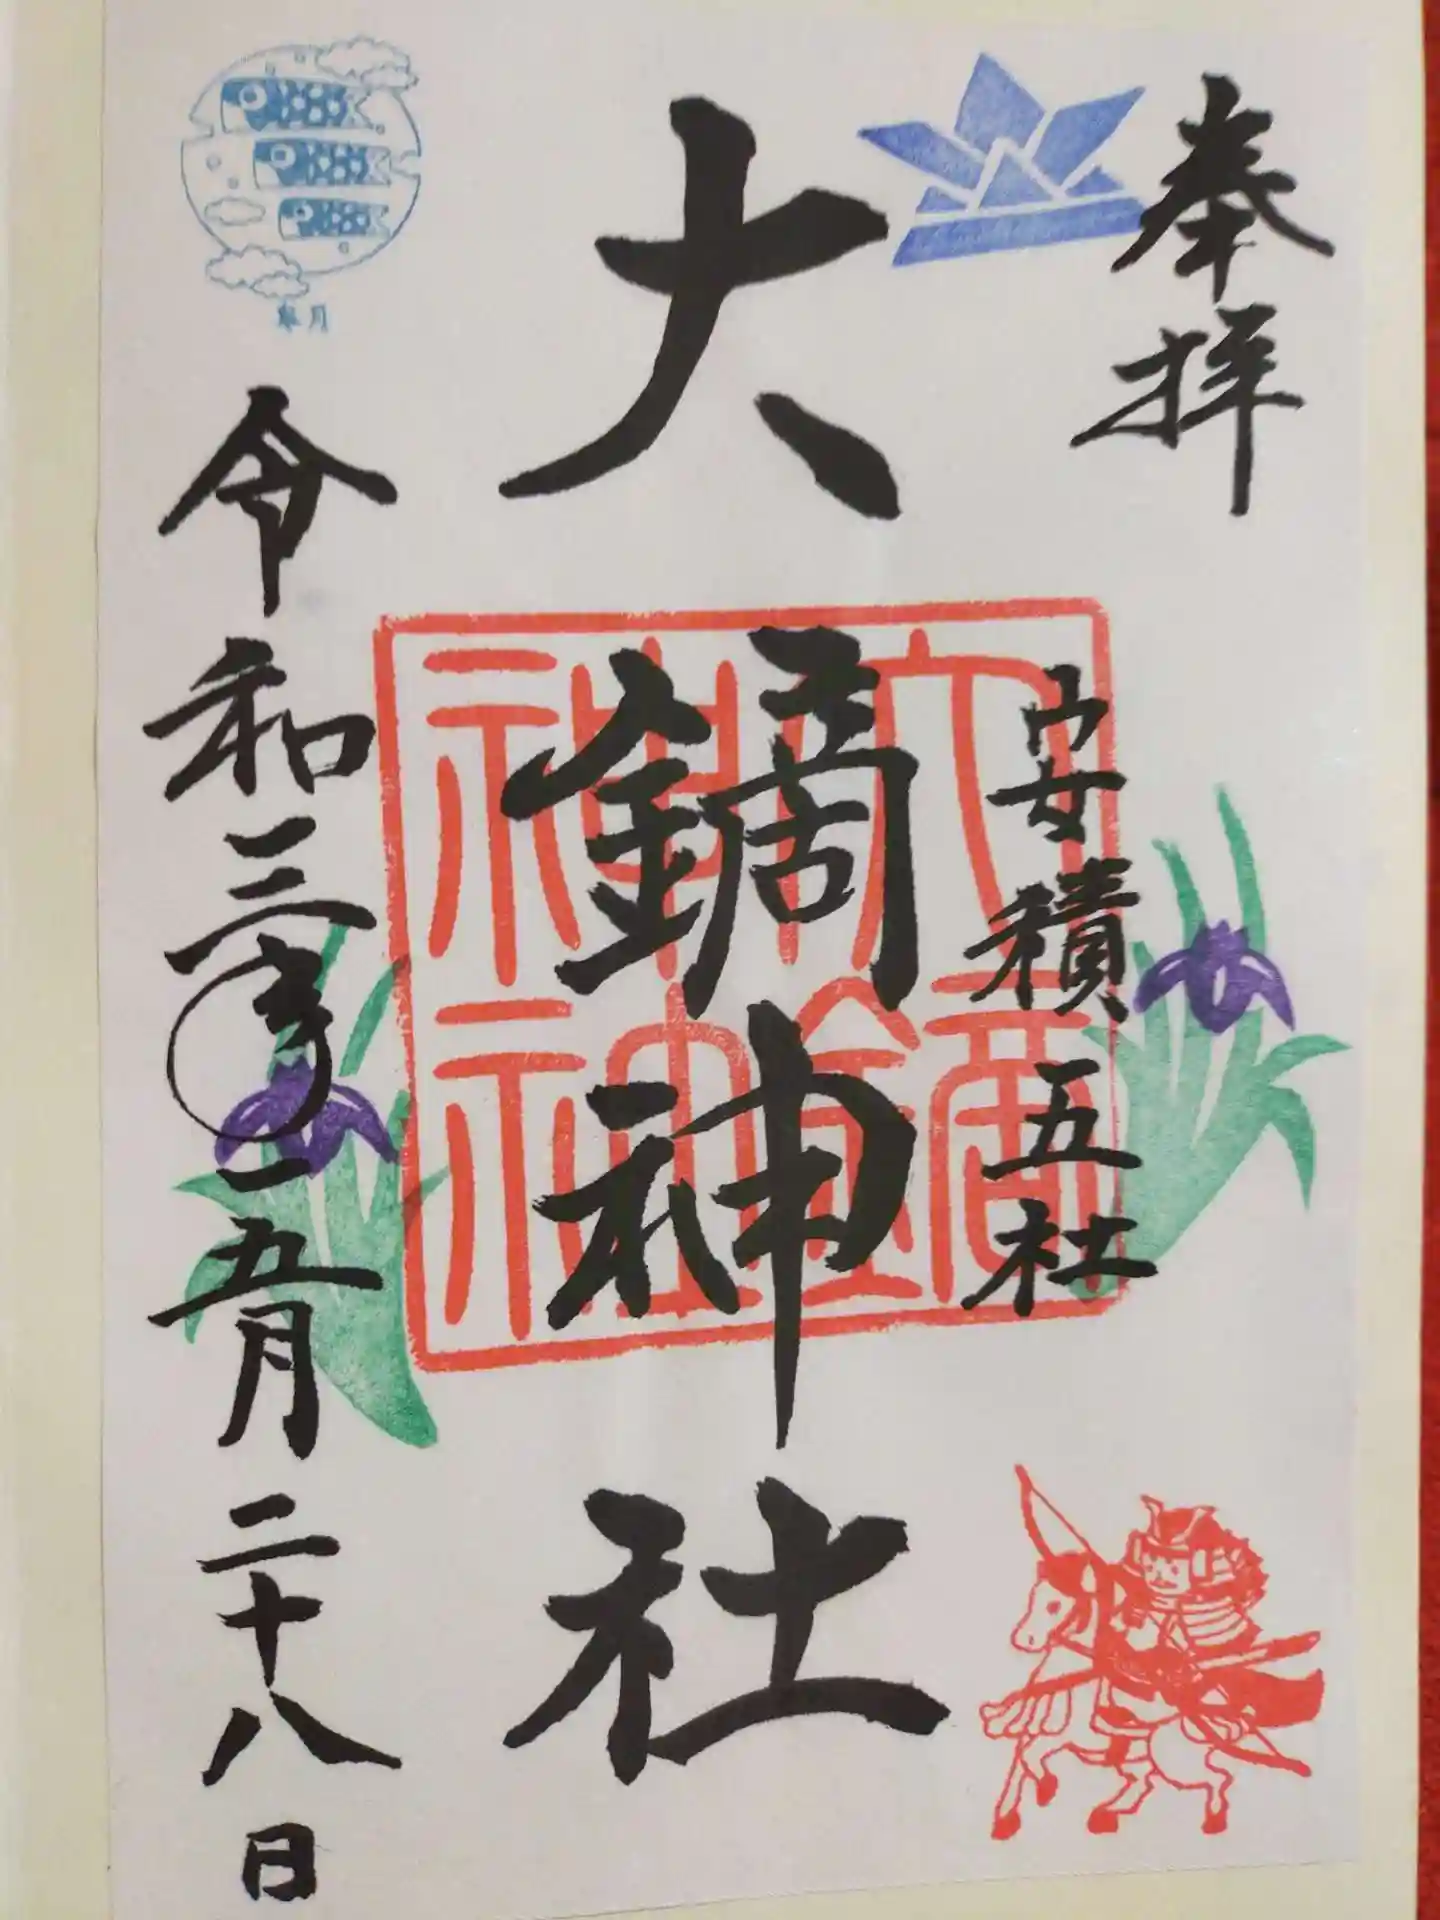 奉拝
安積五社
大鏑神社
大鏑神社
令和三年五月二十八日
皐月